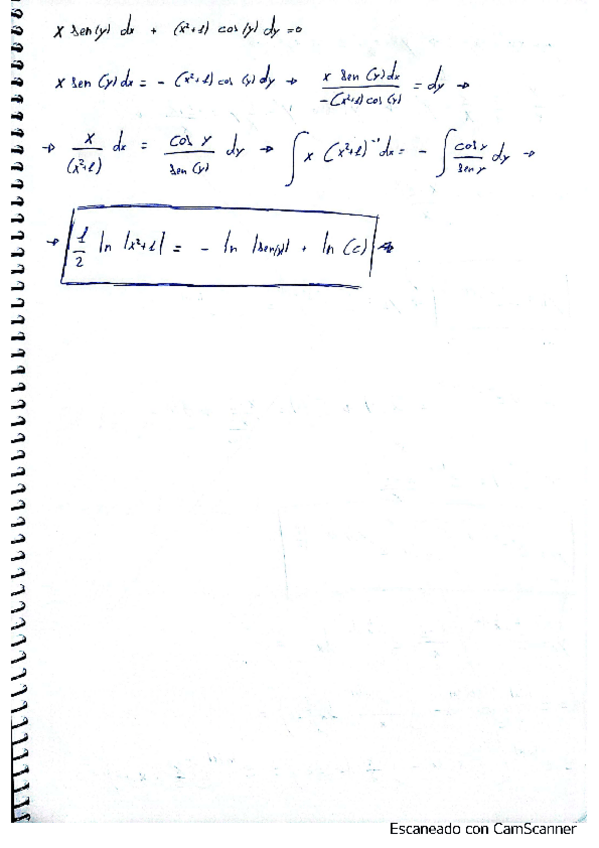 x sen(y) dx + (x²+1) cos(y) dy = 0
x sen(y) dx = - (x²+1) cos(y) dy → x sen(y) dx / -(x²+1) cos(y) = dy →
→ x / (x²+1) dx = cos y / sen(y) dy → ∫ x (x²+1)⁻¹ dx = - ∫ cos y / sen y dy →
→ 1/2 ln |x²+1| = - ln |sen(y)| + ln (c)
Escaneado con CamScanner